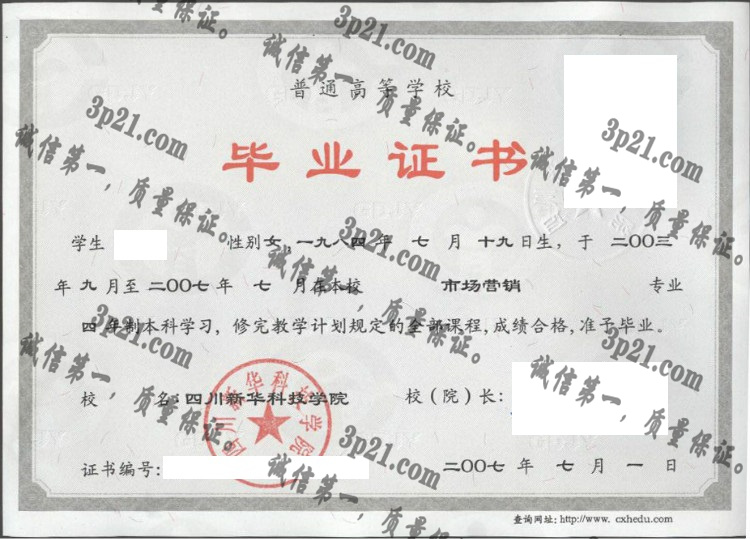 普通高等学校
毕业证书
学生 性别女,一九八四年 七 月 十九日生, 于 二〇〇三
年九月至二〇〇七年 七 月在本校 市场营销 专业
四年制本科学习, 修完教学计划规定的全部课程,成绩合格,准予毕业。
校 名:四川新华科技学院 校(院)长:
四川新华科技学院
证书编号: 二〇〇七 年 七 月 一 日
查询网址: http://www. cxhedu.com
质量保证。
3p21.com
诚信第一,质量保证。
3p21.com
诚信第一,质量保证。
3p21.com
诚信第一,质量保证。
3p21.com
诚信第一,质量保证。
3p21.com
诚信第一,质量保证。
3p21.com
诚信第一,质量保证。
3p21.com
诚信第一,质量保证。